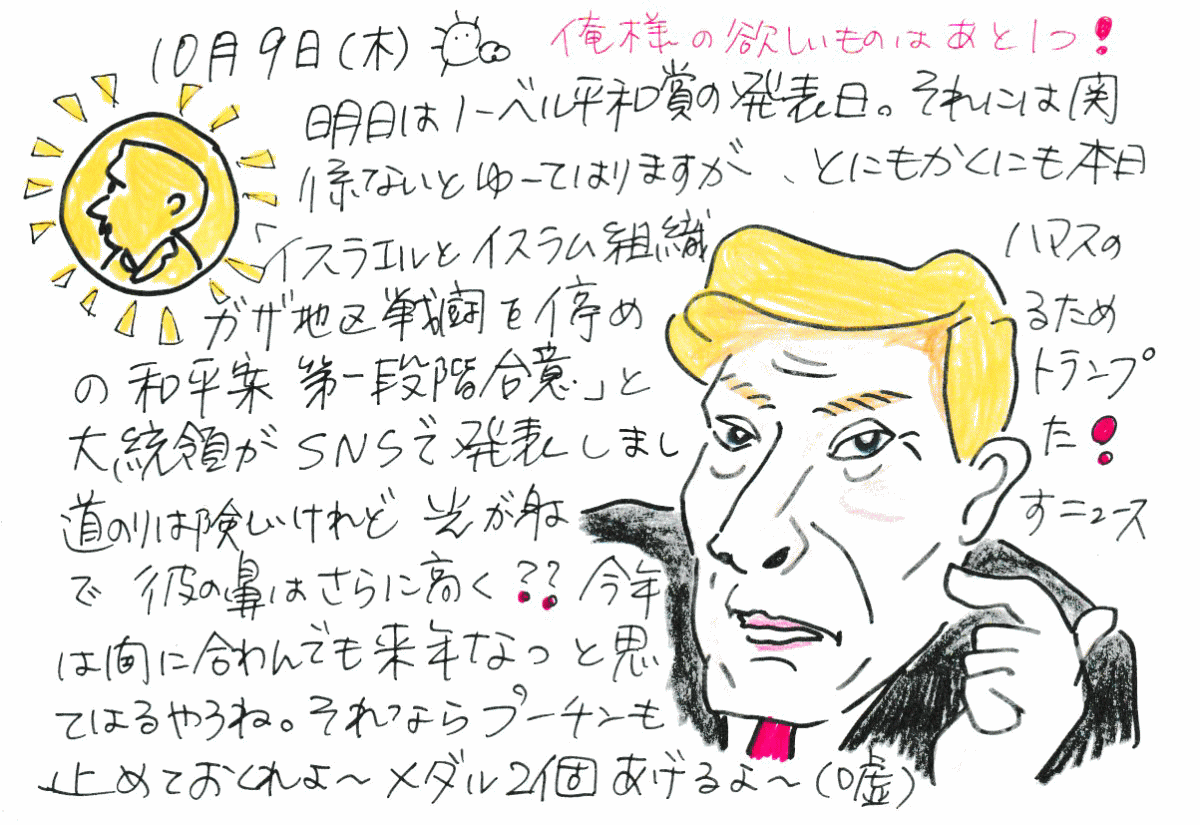 10月9日(木)
俺様の欲しいものはあと1つ!
明日はノーベル平和賞の発表日。それには関
係ないとゆーてはりますが、とにもかくにも本日
イスラエルとイスラム組織ハマスの
ガザ地区戦闘を停めるため
の和平案 第一段階合意」とトランプ
大統領がSNSで発表しました!
道のりは険しいけれど 光が射すニュース
で 彼の鼻はさらに高く??今年
は間に合わんでも来年なっと思
てはるやろね。それならプーチンも
止めておくれよ〜メダル2個あげるよ〜(嘘)